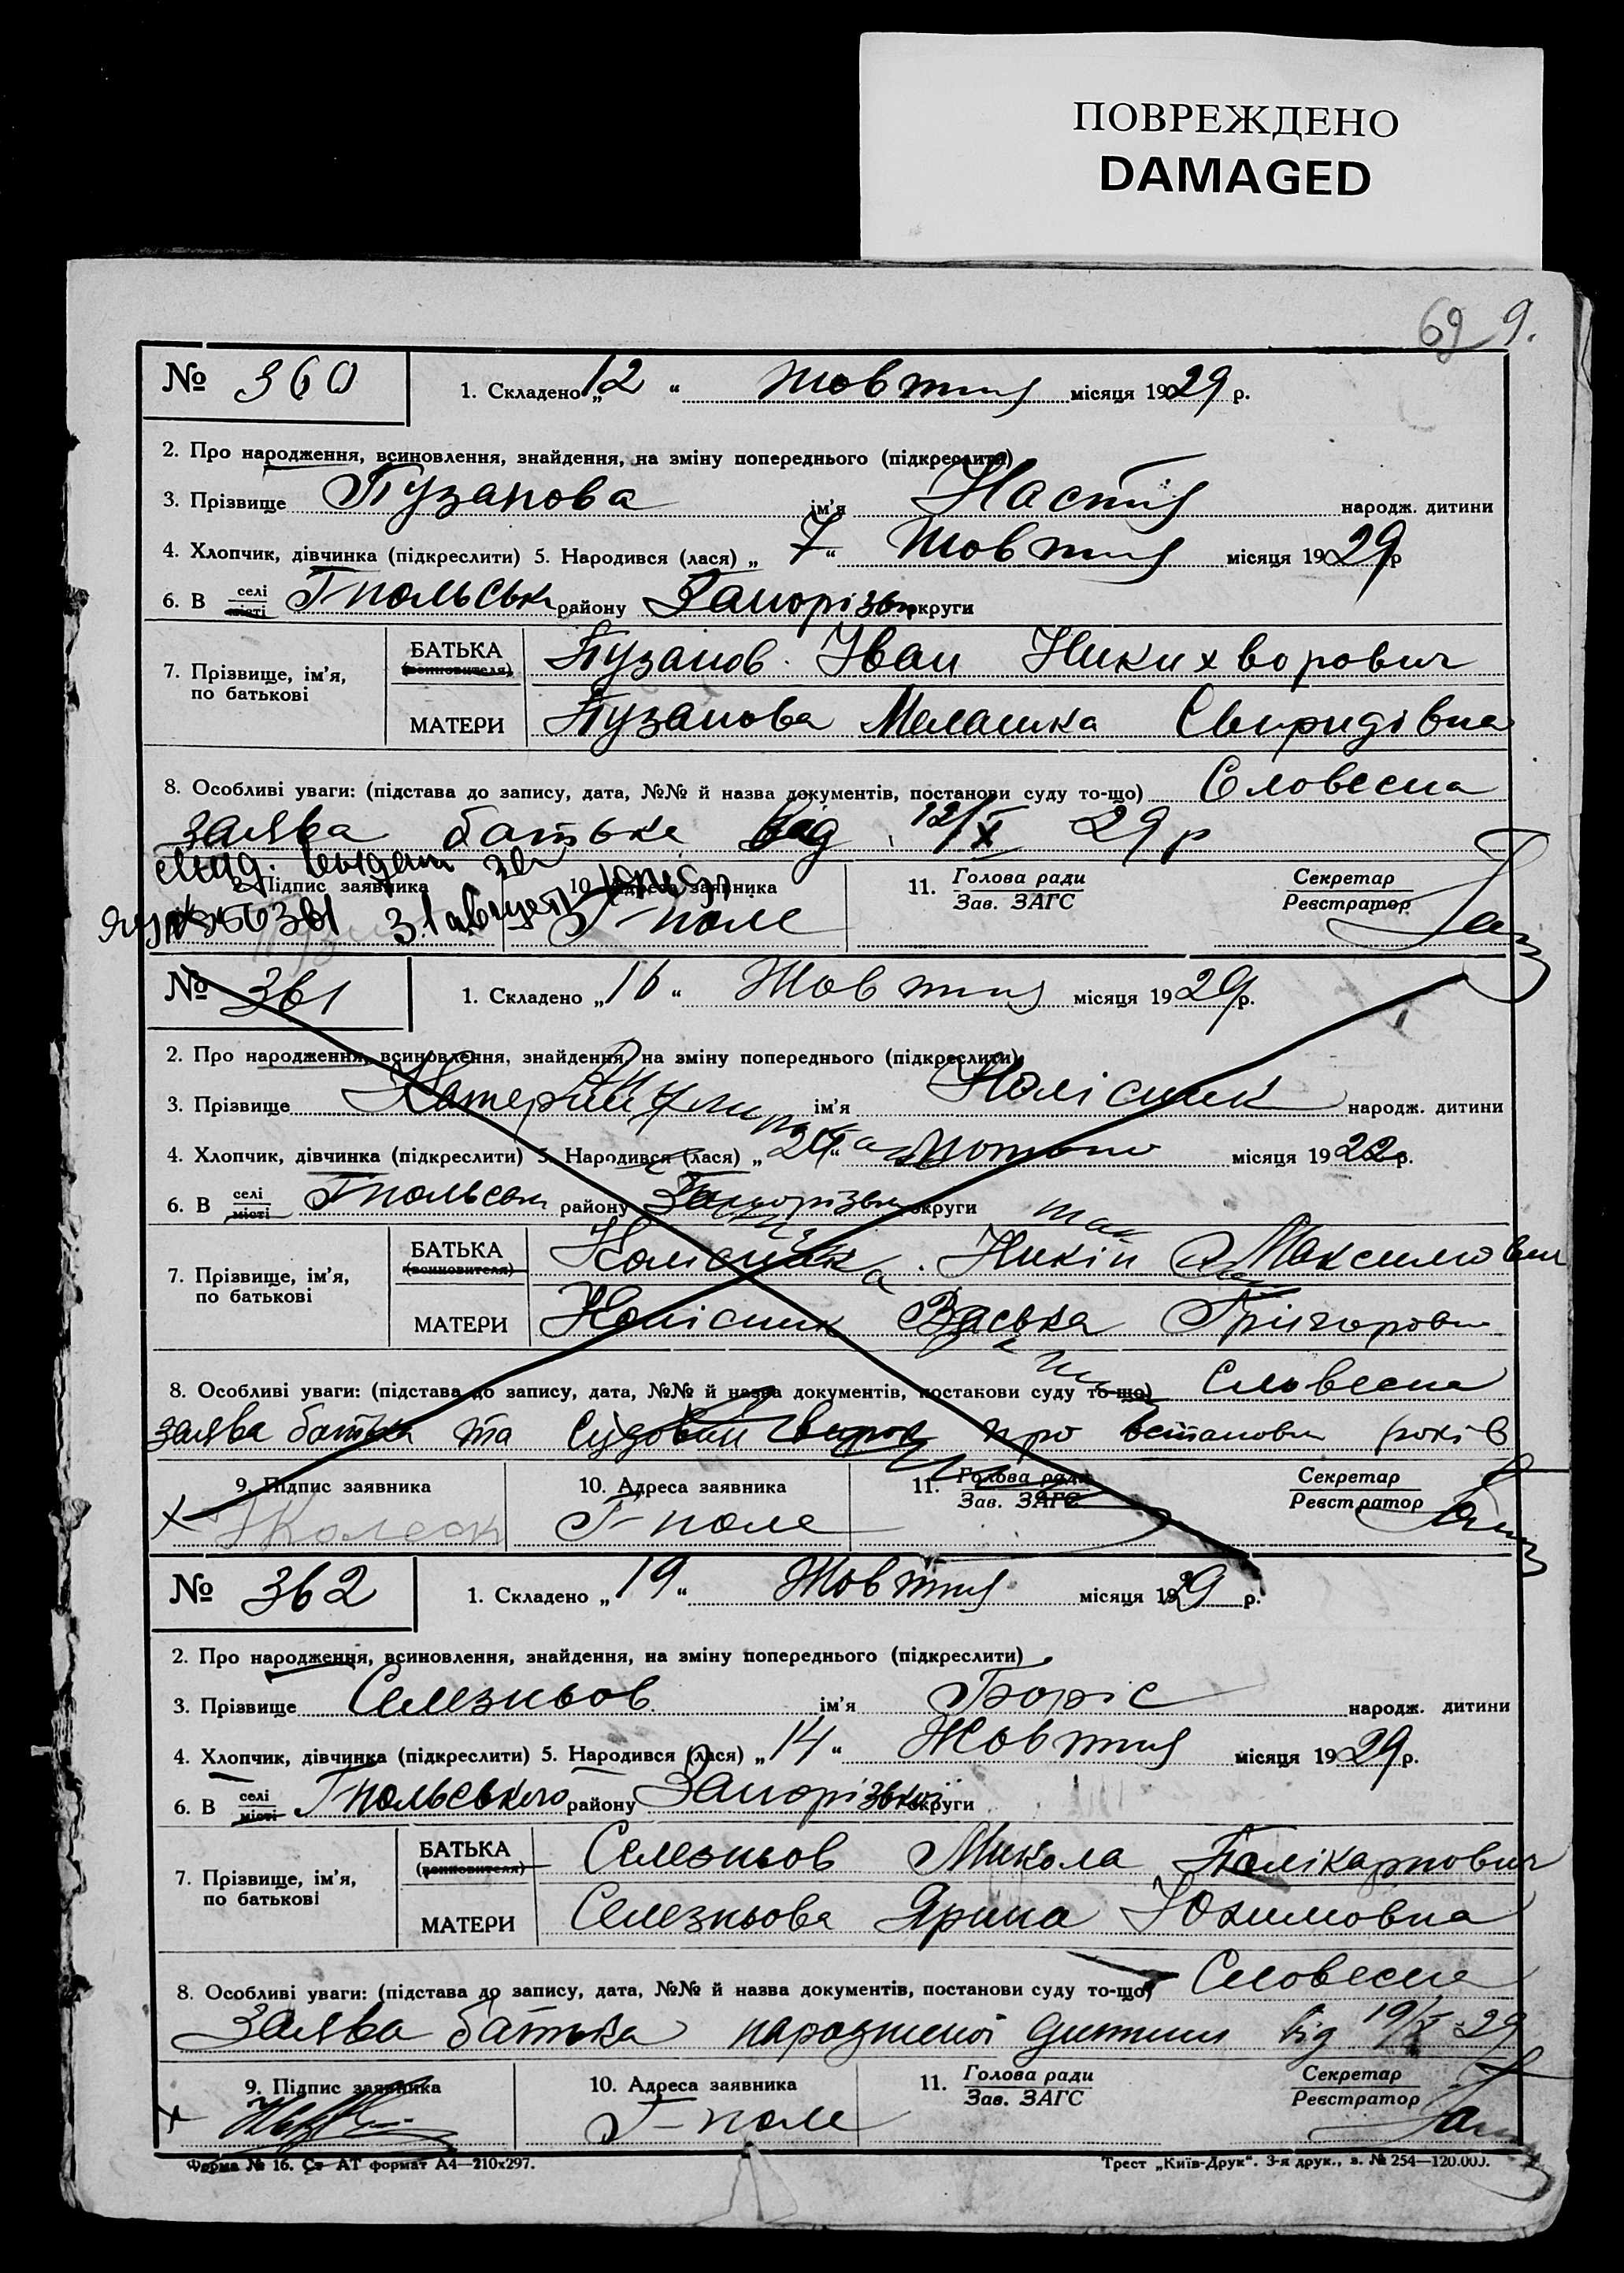 ПОВРЕЖДЕНО
DAMAGED
69 9.
№ 360 1. Складено „12“ Жовтня місяця 1929 р.
2. Про народження, всиновлення, знайдення, на зміну попереднього (підкреслити)
3. Прізвище Пузанова ім’я Настя народж. дитини
4. Хлопчик, дівчинка (підкреслити) 5. Народився (лася) „7“ Жовтня місяця 1929 р
6. В селі місті Гпольськ району Запорізьк округи
7. Прізвище, ім’я, по батькові
БАТЬКА (всиновителя) Пузанов Іван Никихворович
МАТЕРИ Пузанова Мелашка Свиридівна
8. Особливі уваги: (підстава до запису, дата, №№ й назва документів, постанови суду то-що) Словесна
заява батька від 12/X 29 р
9. Підпис заявника 10. Адреса заявника 11. Голова ради Зав. ЗАГС Секретар Реєстратор
31 августа
Г-поле
№ 361 1. Складено „16“ Жовтня місяця 1929 р.
2. Про народження, всиновлення, знайдення, на зміну попереднього (підкреслити)
3. Прізвище Катерина ім’я Колісник народж. дитини
4. Хлопчик, дівчинка (підкреслити) 5. Народився (лася) „24“ Лютого місяця 1922 р.
6. В селі місті Гпольськ району Запорізьк округи
7. Прізвище, ім’я, по батькові
БАТЬКА (всиновителя) Колісник Никін Максимович
МАТЕРИ Колісник Васька Григоровн
8. Особливі уваги: (підстава до запису, дата, №№ й назва документів, постанови суду то-що) Словесна
заява батька та судовий вирок про встановл років
9. Підпис заявника 10. Адреса заявника 11. Голова ради Зав. ЗАГС Секретар Реєстратор
Г-поле
№ 362 1. Складено „19“ Жовтня місяця 1929 р.
2. Про народження, всиновлення, знайдення, на зміну попереднього (підкреслити)
3. Прізвище Селезньов ім’я Боріс народж. дитини
4. Хлопчик, дівчинка (підкреслити) 5. Народився (лася) „14“ Жовтня місяця 1929 р.
6. В селі місті Гпольського району Запорізької округи
7. Прізвище, ім’я, по батькові
БАТЬКА (всиновителя) Селезньов Микола Полікарпович
МАТЕРИ Селезньова Ярина Юхимовна
8. Особливі уваги: (підстава до запису, дата, №№ й назва документів, постанови суду то-що) Словесна
Заява батька народженої дитини від 19/X 29
9. Підпис заявника 10. Адреса заявника 11. Голова ради Зав. ЗАГС Секретар Реєстратор
Г-поле
Форма № 16. Ст АТ формат А4—210х297. Трест „Київ-Друк“. 3-я друк., з. № 254—120.000.